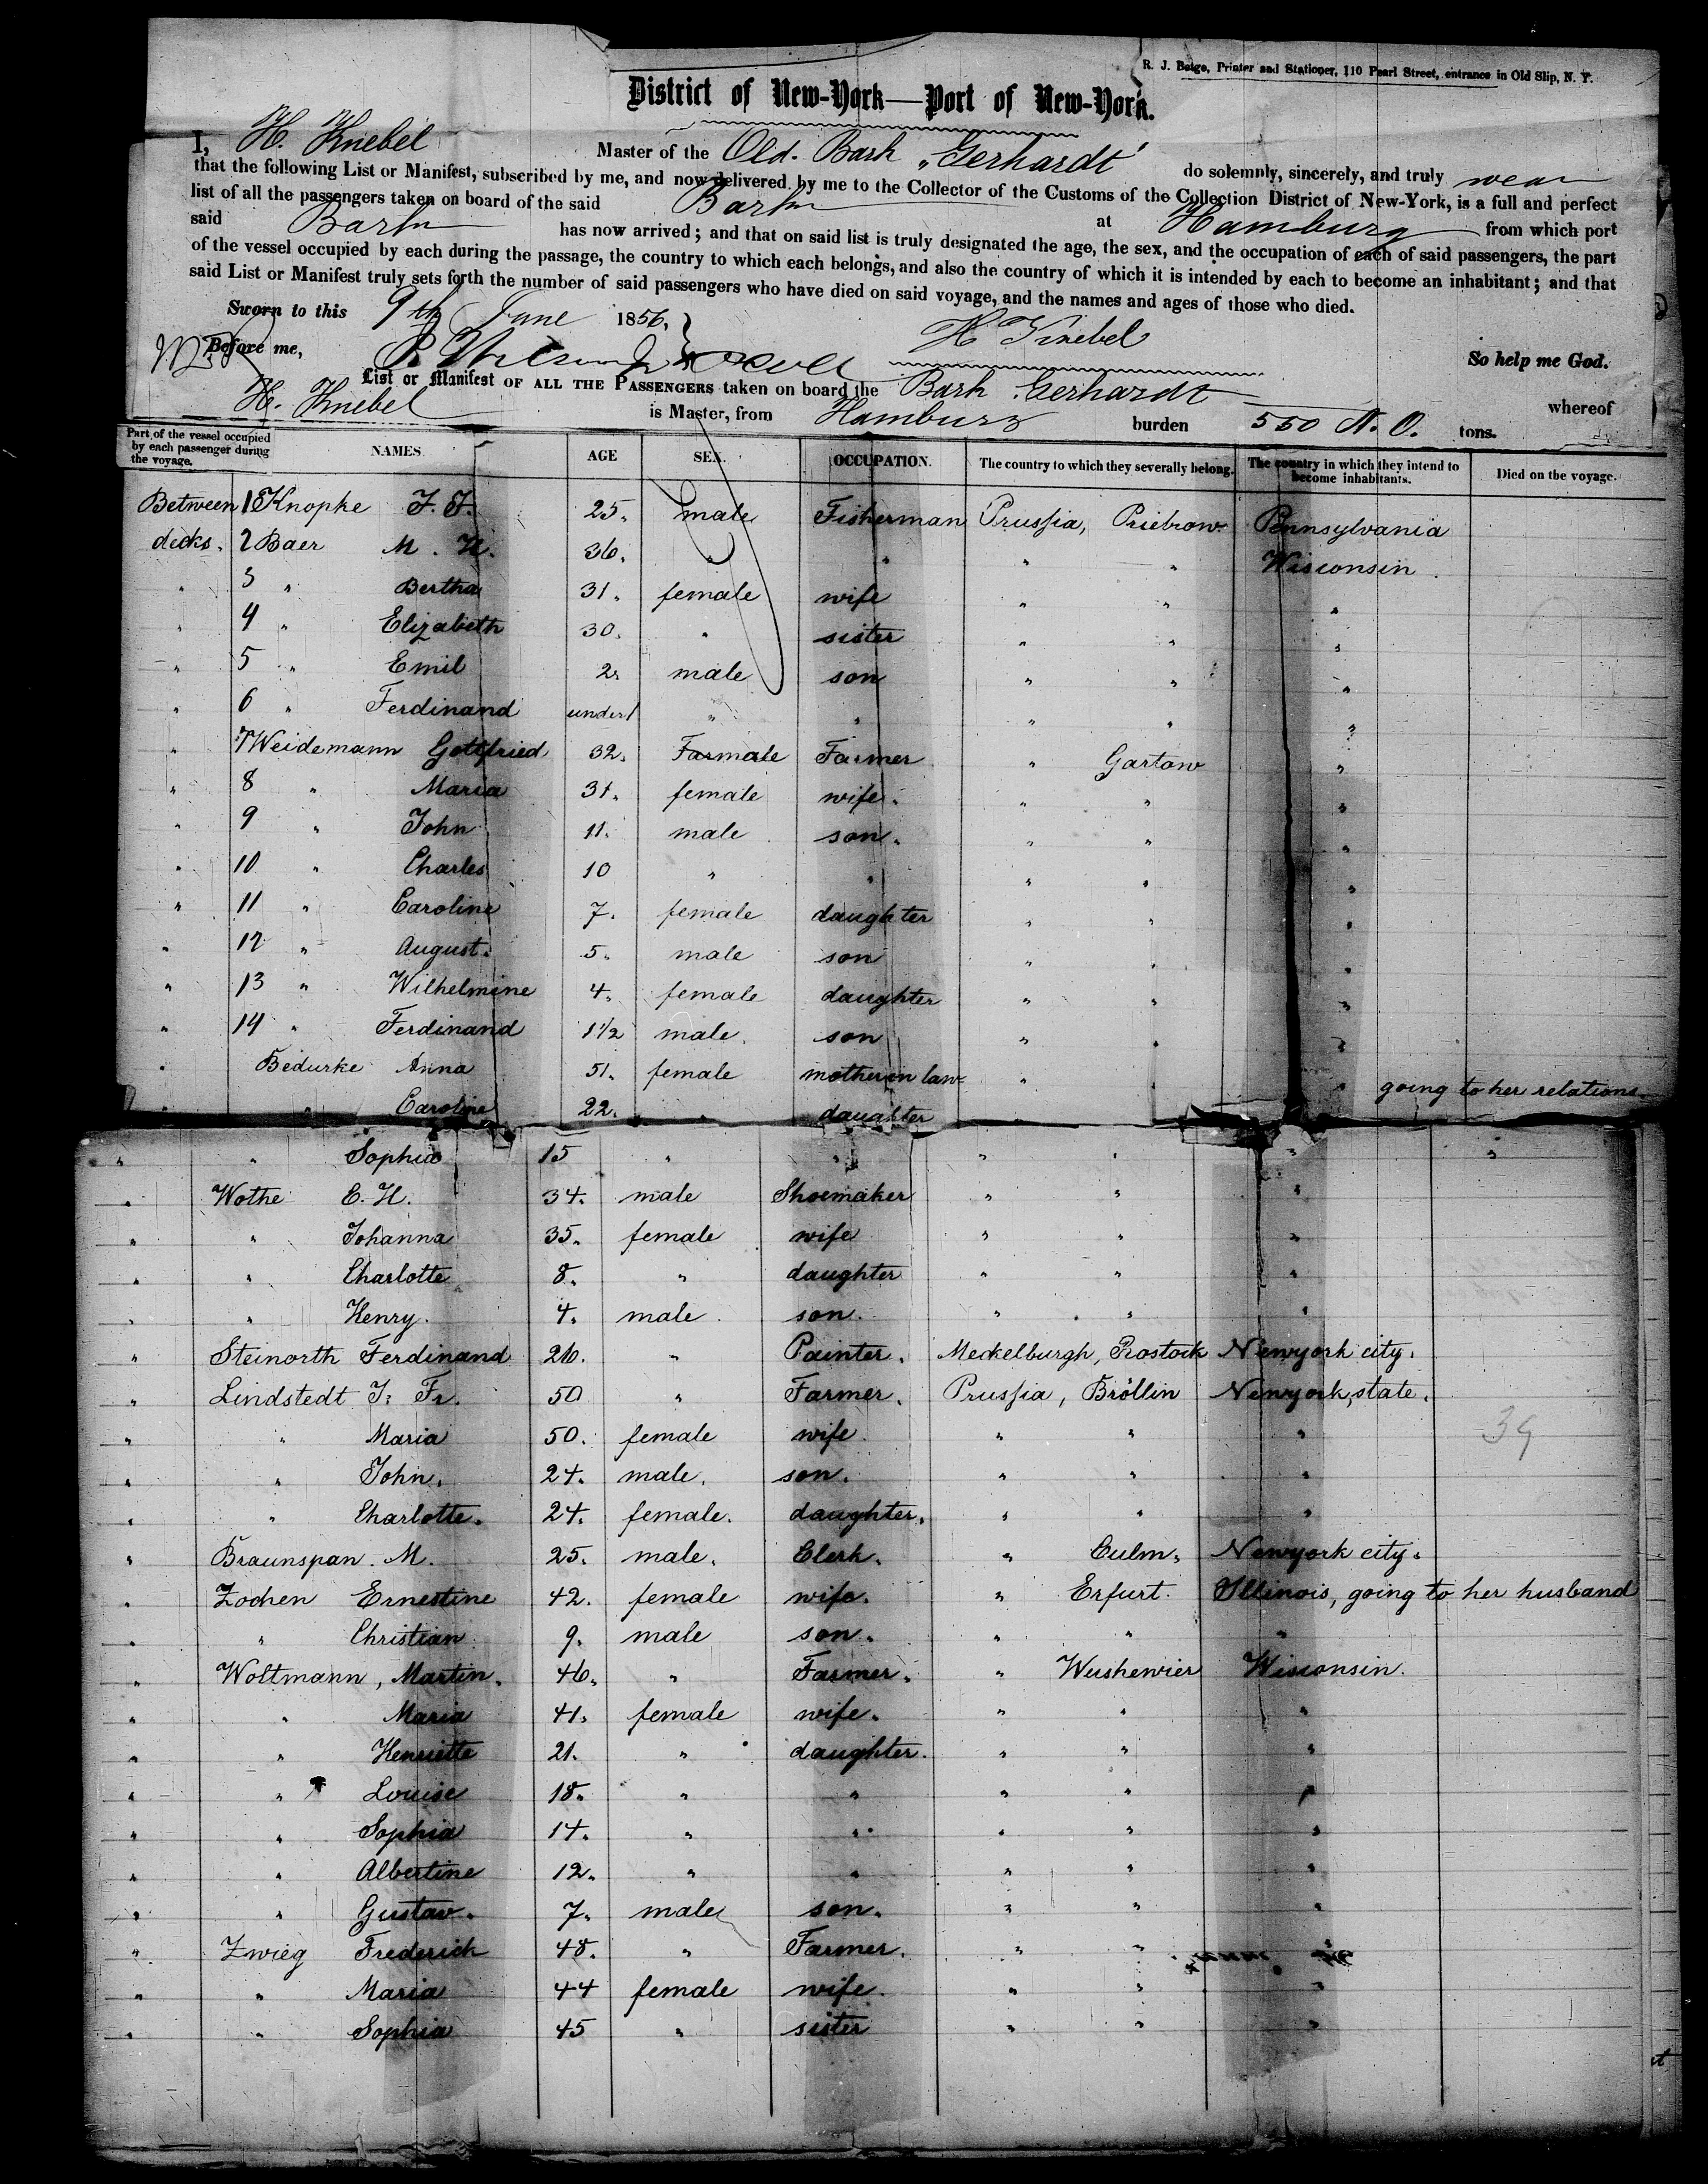 R. J. Betge, Printer and Stationer, 110 Pearl Street, entrance in Old Slip, N. Y.
District of New-York—Port of New-York.
I, H. Knebel Master of the Old. Bark „Gerhardt" do solemnly, sincerely, and truly swear
that the following List or Manifest, subscribed by me, and now delivered by me to the Collector of the Customs of the Collection District of New-York, is a full and perfect
list of all the passengers taken on board of the said Bark at Hamburg from which port
said Bark has now arrived; and that on said list is truly designated the age, the sex, and the occupation of each of said passengers, the part
of the vessel occupied by each during the passage, the country to which each belongs, and also the country of which it is intended by each to become an inhabitant; and that
said List or Manifest truly sets forth the number of said passengers who have died on said voyage, and the names and ages of those who died.
Sworn to this 9th June 1856, H Knebel So help me God.
Before me,
List or Manifest OF ALL THE PASSENGERS taken on board the Bark Gerhardt whereof
H. Knebel is Master, from Hamburg burden 550 N. O. tons.
Part of the vessel occupied by each passenger during the voyage. NAMES. AGE SEX. OCCUPATION. The country to which they severally belong. The country in which they intend to become inhabitants. Died on the voyage.
Between 1 Knopke F. F. 25. male Fisherman Prussia, Priebrow. Pennsylvania
decks. 2 Baer M. H. 36. " " " " Wisconsin
" 3 " Bertha 31. female wife " " "
" 4 " Elizabeth 30. " sister " " "
" 5 " Emil 2. male son " " "
" 6 " Ferdinand under 1 " " " " "
" 7 Weidemann Gottfried 32. Farmale Farmer " Gartow "
" 8 " Maria 31. female wife. " " "
" 9 " John 11. male son. " " "
" 10 " Charles 10 " " " " "
" 11 " Caroline 7. female daughter " " "
" 12 " August. 5. male son " " "
" 13 " Wilhelmine 4. female daughter " " "
" 14 " Ferdinand 1 1/2 male. son " " "
" Bedurke Anna 51. female mother in law " " " going to her relations
" " Caroline 22. " daughter
" " Sophia 15 " " " " " "
" Wothe E. H. 34. male Shoemaker " " "
" " Johanna 35. female wife " " "
" " Charlotte 8. " daughter " " "
" " Henry. 4. male son. " " "
" Steinorth Ferdinand 26. " Painter. Meckelburgh, Rostock Newyork city.
" Lindstedt J. Fr. 50 " Farmer. Prussia, Bröllin Newyork, state.
" " Maria 50. female wife " " "
39
" " John. 24. male. son. " " "
" " Charlotte. 24. female. daughter. " " "
" Braunspan. M. 25. male. Clerk. " Culm. Newyork city.
" Zochen Ernestine 42. female wife. " Erfurt. Illinois, going to her husband
" " Christian 9. male son. " " "
" Woltmann, Martin. 46. " Farmer. " Wushewier Wisconsin.
" " Maria 41. female wife. " " "
" " Henriette 21. " daughter. " " "
" " Louise 18. " " " " "
" " Sophia 14. " " " " "
" " Albertine 12. " " " " "
" " Gustav. 7. male son. " " "
" Zwieg Frederich 48. " Farmer. " "
" " Maria 44 female wife. " " "
" " Sophia 45 " sister " " "